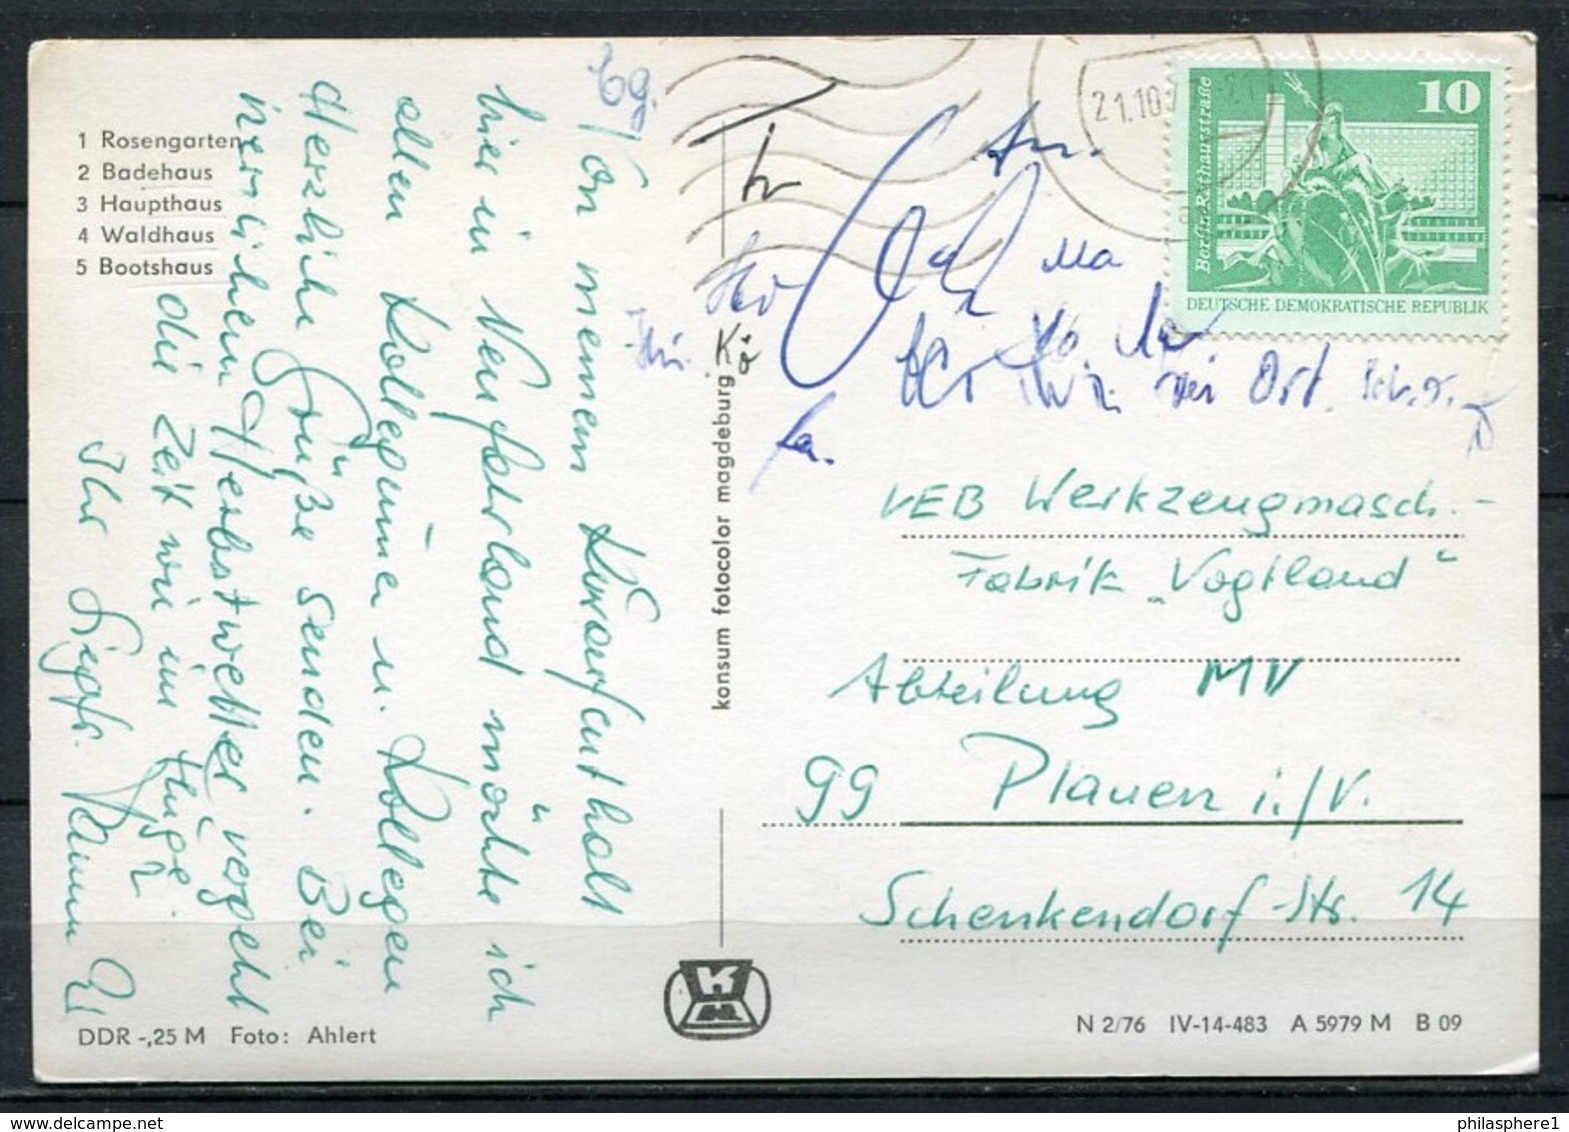 1 Rosengarten
2 Badehaus
3 Haupthaus
4 Waldhaus
5 Bootshaus
Von meinem Kuraufenthalt
hier in Neufahrland möchte ich
allen Kolleginnen u. Kollegen
Herzliche Grüße senden. Bei
herrlichem Herbstwetter vergeht
die Zeit wie im Fluge
Ihr
DDR -,25 M Foto: Ahlert
konsum fotocolor magdeburg
21.10
10
Berlin-Rathausstraße
DEUTSCHE DEMOKRATISCHE REPUBLIK
An.
Ma
Ort
Fa.
VEB Werkzeugmasch.-
Fabrik „Vogtland“
Abteilung MV
99 Plauen i./V.
Schenkendorf-Str. 14
N 2/76 IV-14-483 A 5979 M B 09
philasphere1